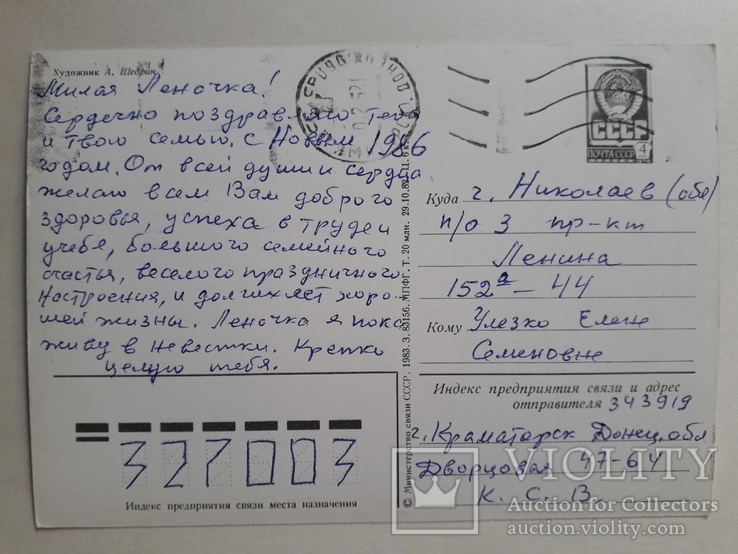 Художник А. Щедрин
Милая Леночка!
Сердечно поздравляю тебя
и твою семью с Новым 1986
годом. От всей души и сердца
желаю всем Вам доброго
здоровья, успеха в труде и
учебе, большого семейного
счастья, веселого праздничного
настроения, и долгих лет хоро-
шей жизни. Леночка я пока
живу в невестки. Крепко
целую тебя.
СССР
ПОЧТА СССР
4
Куда г. Николаев (обл)
п/о 3 пр-кт
Ленина
152а – 44
Кому Улезко Елене
Семеновне
Индекс предприятия связи и адрес
отправителя 343919
г. Краматорск Донец. обл
Дворцовая 47-64
К. С. В.
327003
Индекс предприятия связи места назначения
© Министерство связи СССР, 1983. З. 83156. МПФГ, Т. 20 млн.
VIOLITY
Auction for Collectors
auction.violity.com